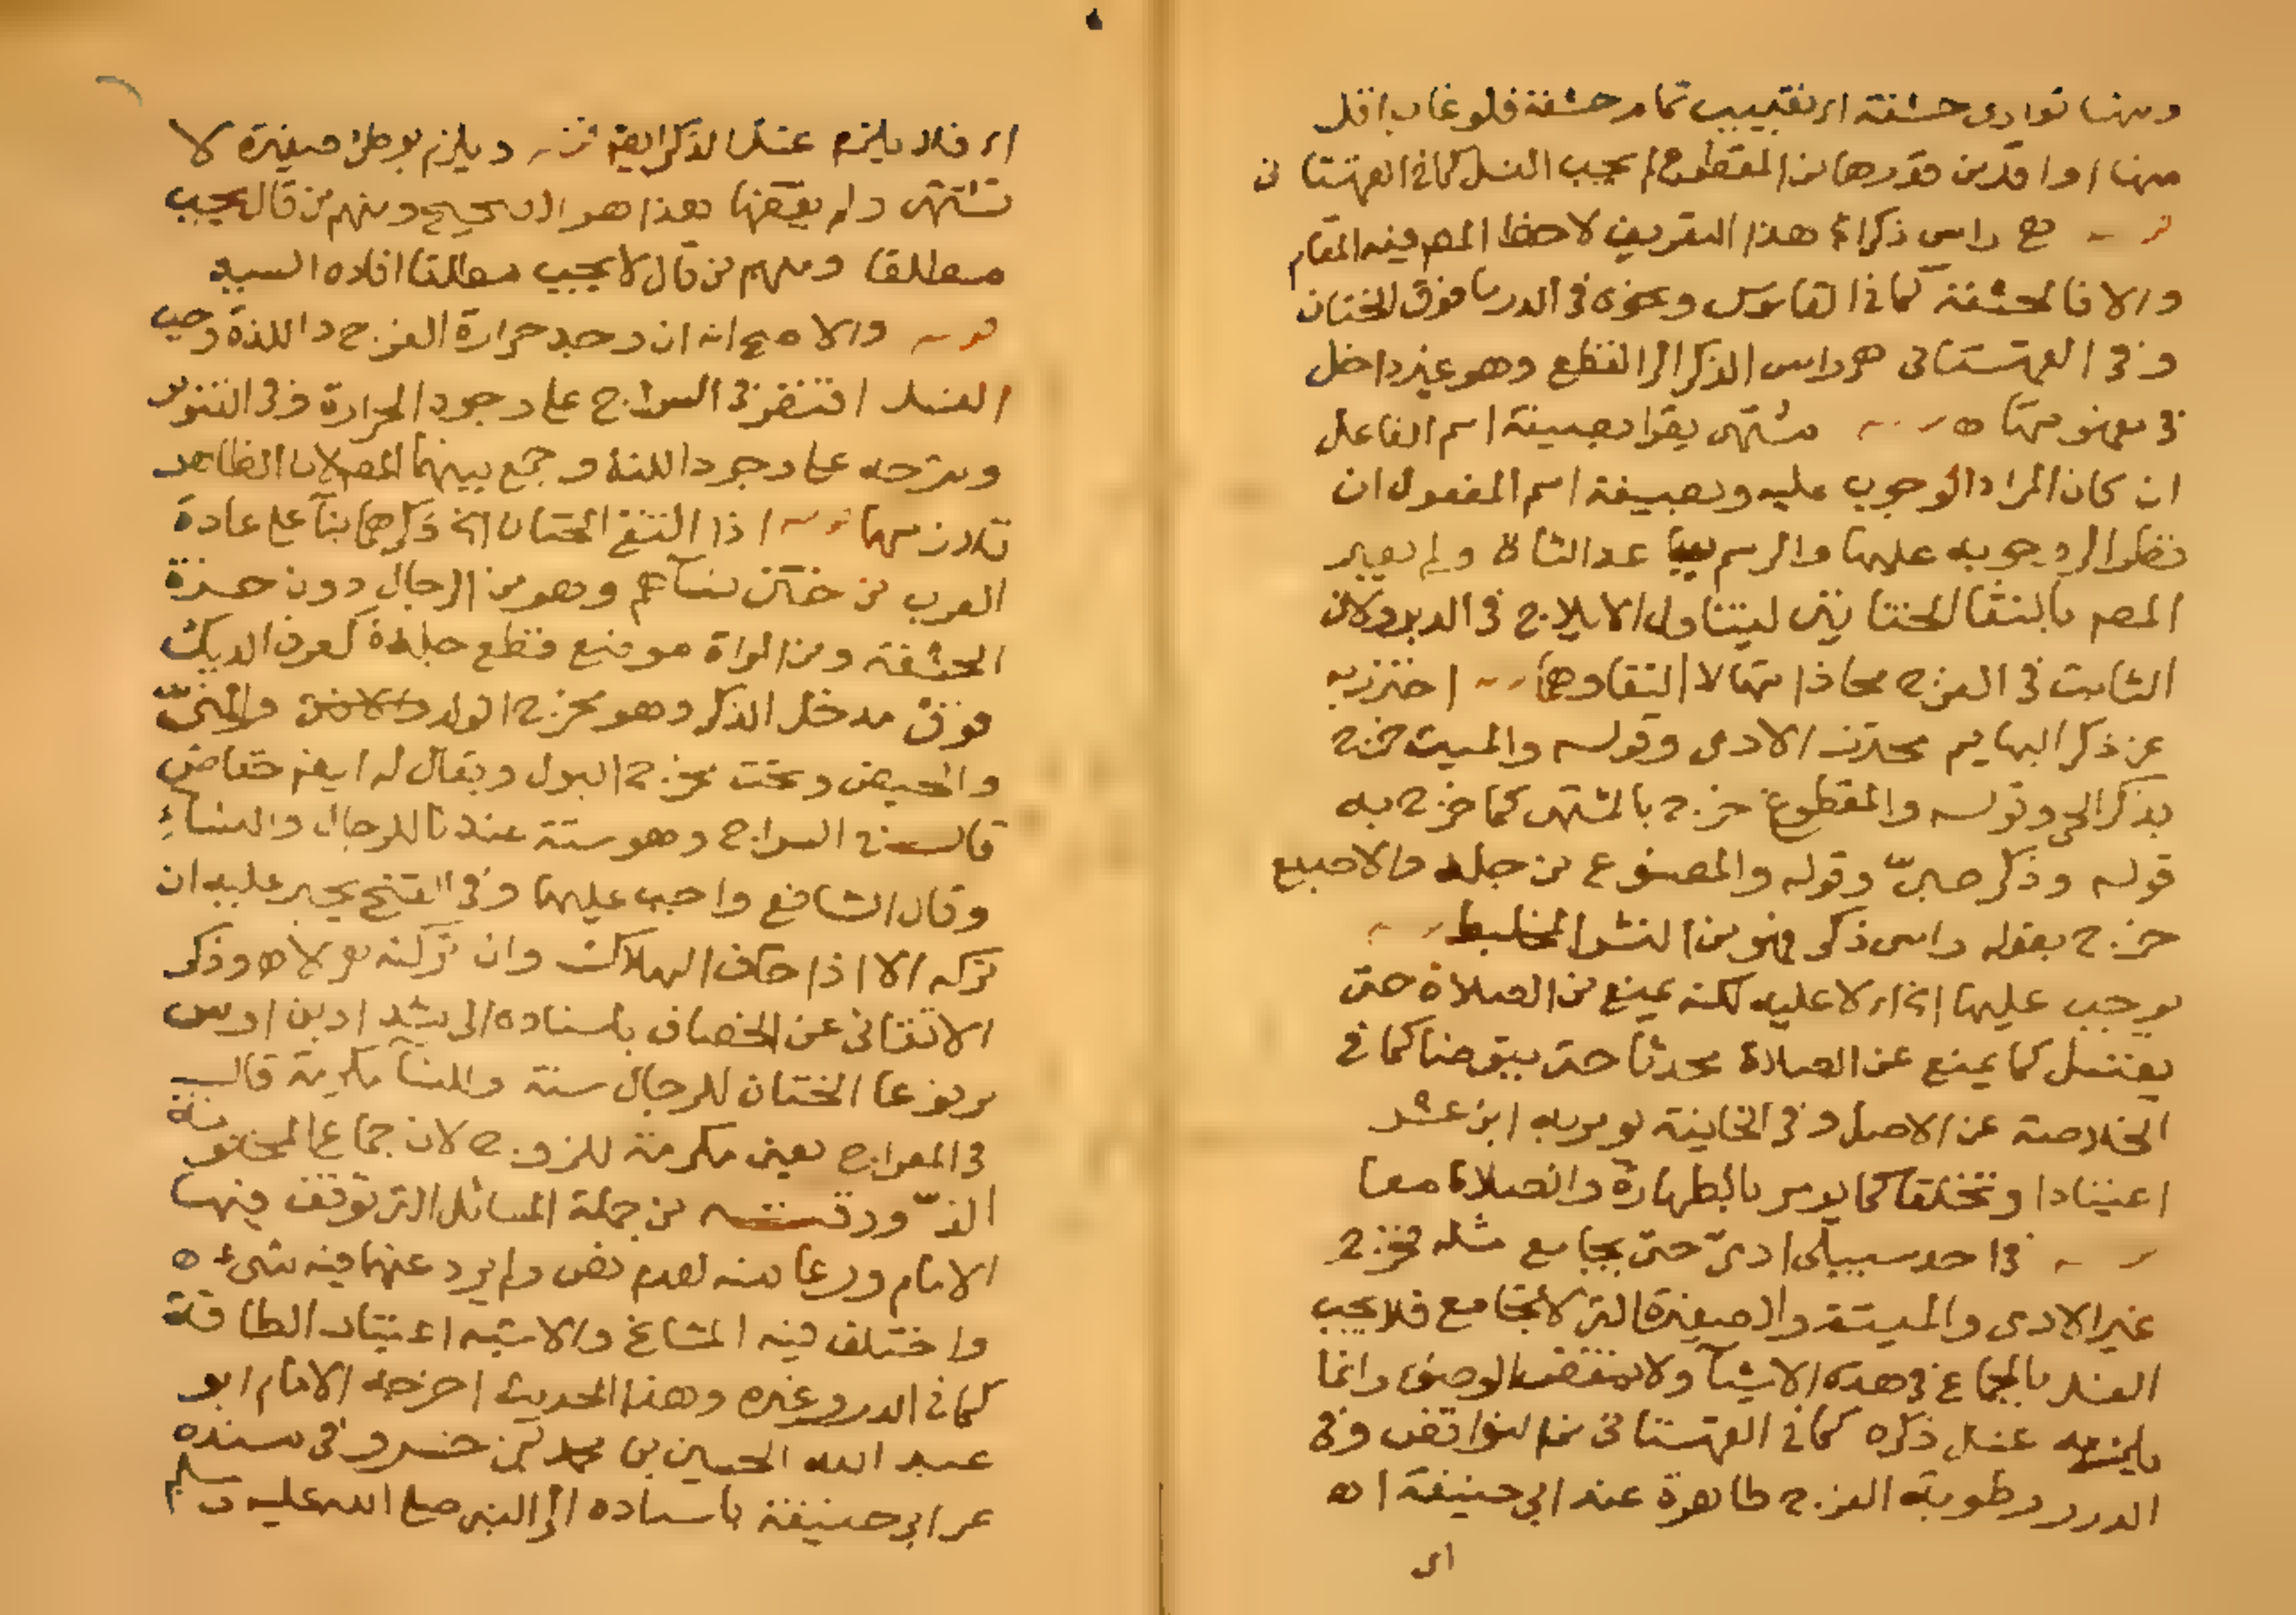 ومنها توارى حشفة اى تغييب تمام حشفة فلو غاب اقل
منها او اقل من قدرها من المقطوع لم يجب الغسل كما في القهستانى
هى راس ذكر الخ هذا التعريف لاحظ المص فيه المقام
والا فالحشفة كما في القاموس ونحوه في الدرر ما فوق الختان
وفي القهستانى هى راس الذكر الى القطع وهو غير داخل
في مفهومها اه مشتهى يقرا بصيغة اسم الفاعل
ان كان المراد الوجوب عليه وبصيغة اسم المفعول ان
نظر الى وجوبه عليها والرسم ولم يعبر
المص بالتقا الختانين ليتناول الايلاج في الدبر ولان
الثابت في الفرج محاذاتهما لا التقاوهما احترز به
عن ذكر البهايم محترز الادمى وقوله والميت خرج
بذكر الحى وقوله والمقطوع خرج بالمشتهى كما خرج به
قوله وذكر صبى وقوله والمصنوع من جلد والاصبع
خرج بقوله راس ذكر فهو من النشر المخلبط
يوجب عليها الخ اى لا عليه لكنه يمنع من الصلاة حتى
يغتسل كما يمنع عن الصلاة محدثا حتى يتوضا كما في
الخلاصة عن الاصل وفي الخانية يومر به ابن عشر
اعتيادا وتخلقا كما يومر بالطهارة والصلاة
في احد سبيلى ادمى حى يجامع مثله فخرج
غير الادمى والميتة والصغيرة التى لا تجامع فلا يجب
الغسل بالجماع في هذه الاشيآ ولا ينتقض الوضو وانما
يلزمه غسل ذكره كما في القهستانى نواقض وفي
الدرر رطوبة الفرج طاهرة عند ابى حنيفة اه
اى
اى فلا يلزم غسل الذكر ايضا ويلزم بوطئ صغيرة لا
تشتهى ولم يفضها هذا هو الصحيح ومنهم من قال يجب
مطلقا ومنهم من قال لا يجب مطلقا افاده السيد
والاصح انه ان وجد حرارة الفرج واللذة وجب
الغسل اقتصر في السراج على وجود الحرارة وفي التنوير
وشرحه على وجود اللذة وجمع بينهما المص لان الظاهر
تلازمهما اذا التقى الختانان الخ ذكرهما بنآ على عادة
العرب من ختن نسآئهم وهو من الرجال دون حزة
الحشفة ومن المراة موضع قطع جلدة كعرف الديك
فوق مدخل الذكر وهو مخرج الولد والمنى
والحيض وتحت مخرج البول ويقال له ايضا خفاض
قال في السراج وهو سنة عندنا للرجال والنسآء
وقال الشافعى واجب عليهما وفي الفتح يجبر عليه ان
تركه الا اذا خاف الهلاك وان تركته هى لا اه وذكر
الاتقانى عن الخصاف باسناده الى شداد بن اوس
مرفوعا الختان للرجال سنة وللنسآ مكرمة قال
في المعراج يعنى مكرمة للزوج لان جماع المختونة
الذ ووقته من جملة المسائل التى توقف فيها
الامام ورعا منه لعدم نص ولم يرد عنهما فيه شىء
واختلف فيه المشايخ والاشبه اعتبار الطاقة
كما في الدر وغيره وهذا الحديث اخرجه الامام ابو
عبد الله الحسين بن محمد بن خسرو في سنده
عن ابى حنيفة باسناده الى النبى صلى الله عليه وسلم